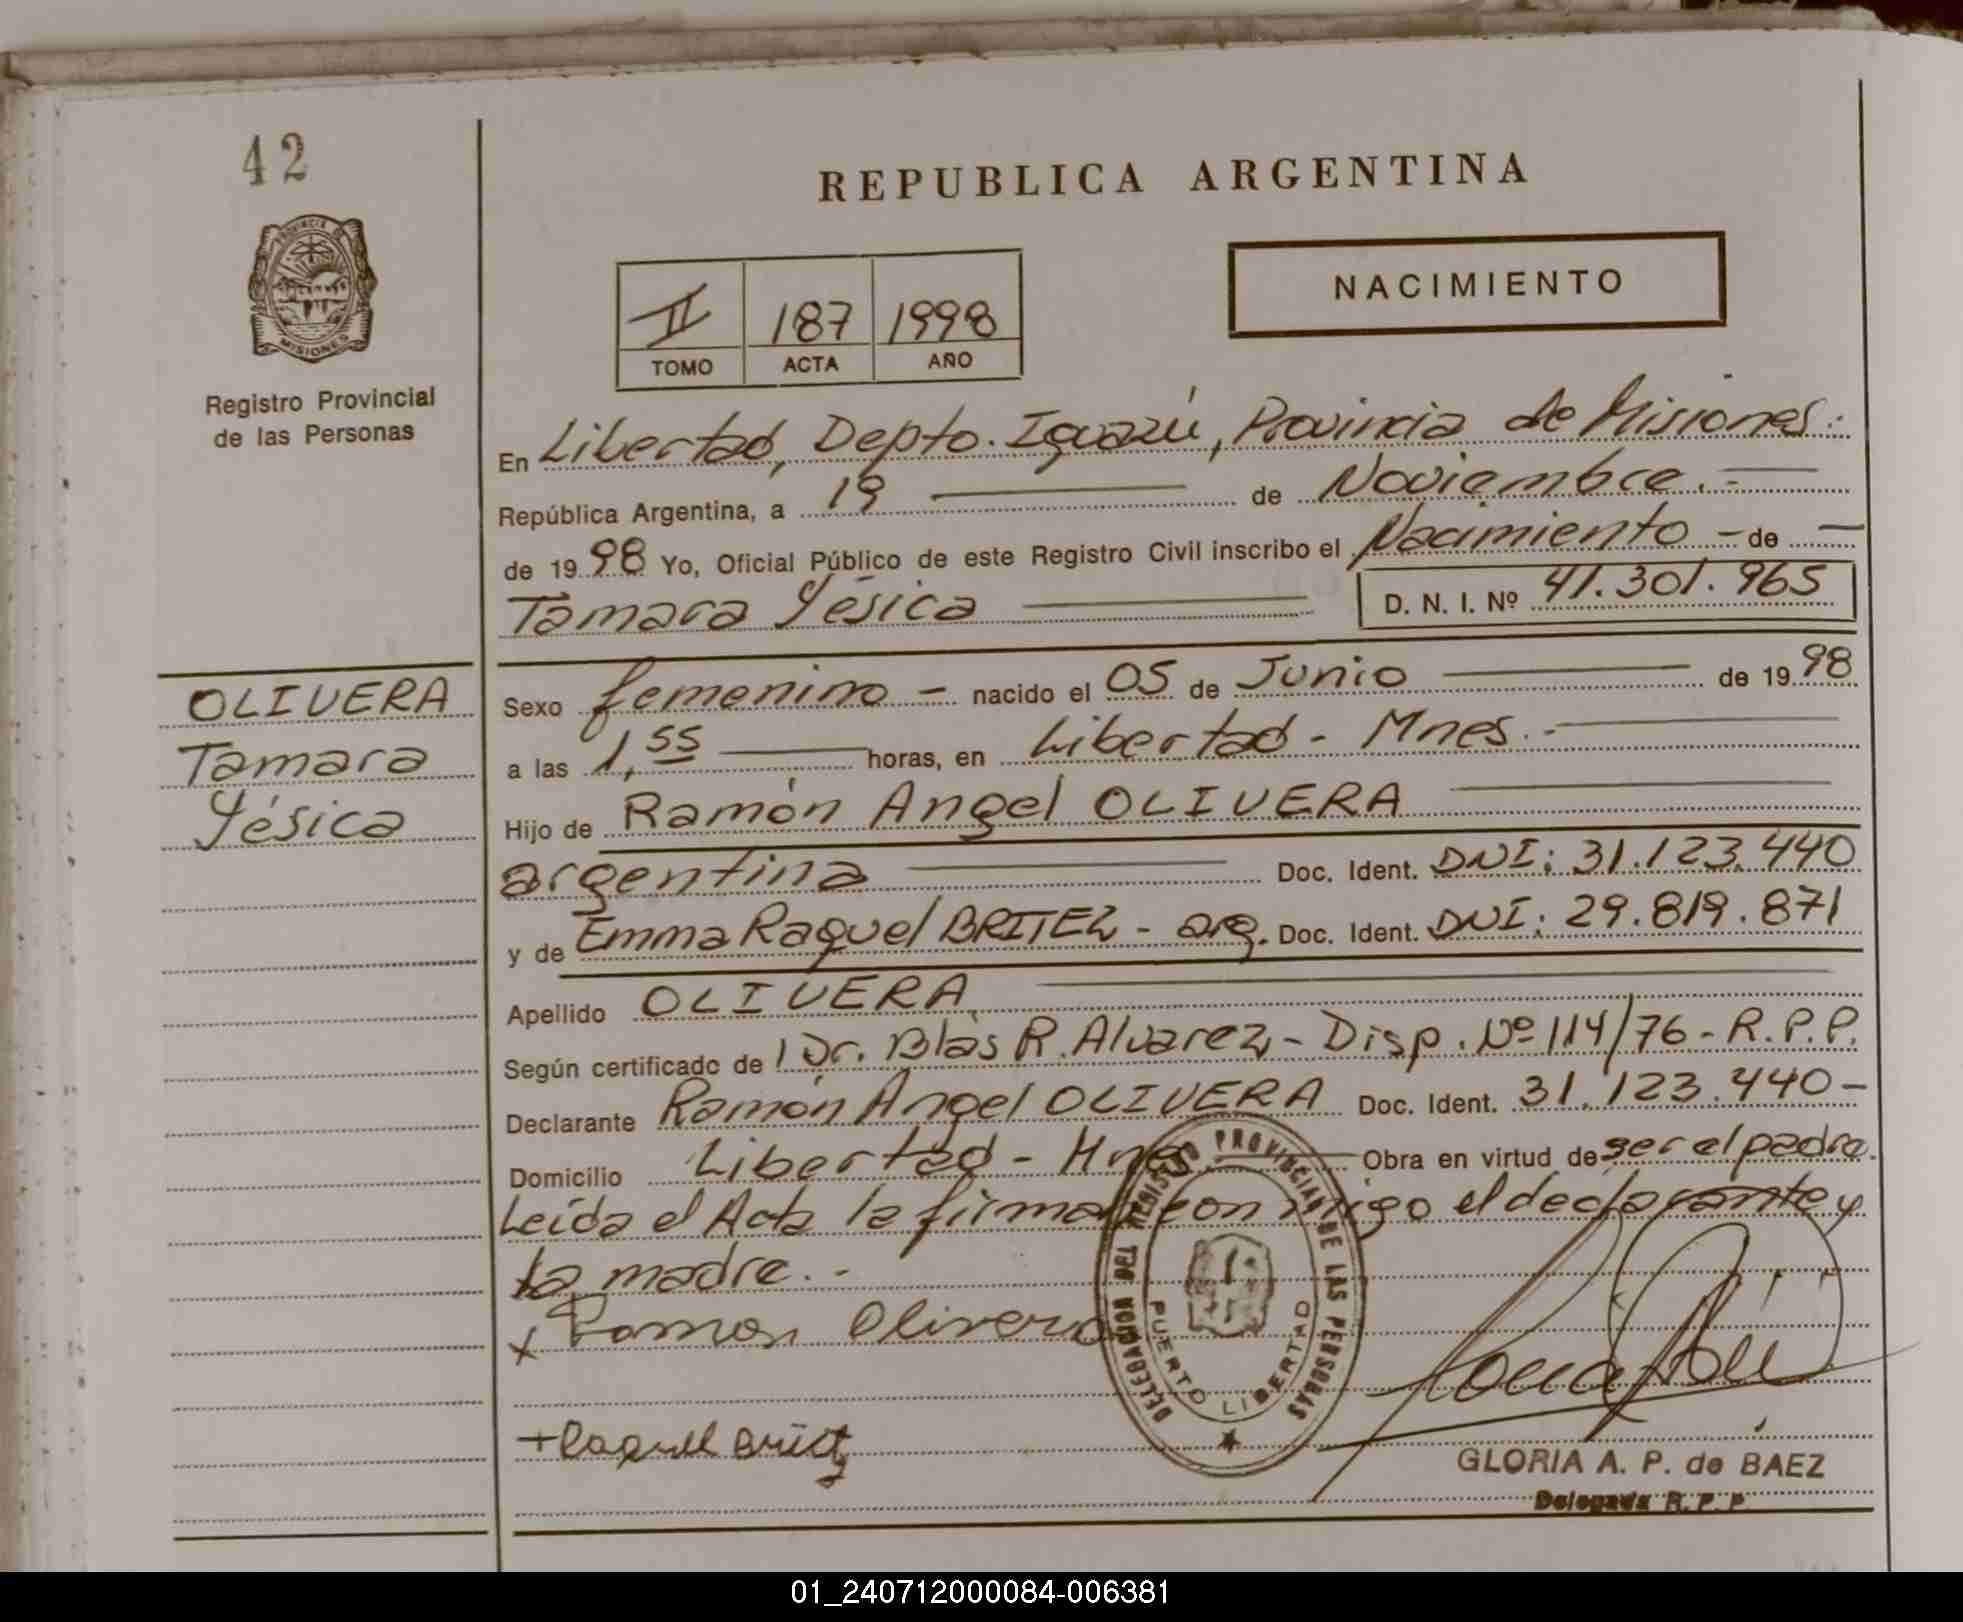 42
REPUBLICA ARGENTINA
PROVINCIA DE
MISIONES
Registro Provincial
de las Personas
II 187 1998
TOMO ACTA AÑO
NACIMIENTO
En Libertad, Depto. Iguazú, Provincia de Misiones.
República Argentina, a 19 de Noviembre.-
de 1998 Yo, Oficial Público de este Registro Civil inscribo el Nacimiento - de
Tamara Yésica
D. N. I. Nº 41.301.965
OLIVERA
Tamara
Yésica
Sexo femenino - nacido el 05 de Junio de 1998
a las 1,55 horas, en Libertad - Mnes.-
Hijo de Ramón Angel OLIVERA
argentina Doc. Ident. DNI: 31.123.440
y de Emma Raquel BRITEZ - arg. Doc. Ident. DNI: 29.819.871
Apellido OLIVERA
Según certificado de Dr. Blás R. Alvarez - Disp. Nº 114/76 - R.P.P.
Declarante Ramón Angel OLIVERA Doc. Ident. 31.123.440-
Domicilio Libertad - Mnes Obra en virtud de ser el padre.
Leída el Acta la firman conmigo el declarante y
la madre.-
x Ramon Olivera
DELEGACION DEL REGISTRO PROVINCIAL DE LAS PERSONAS
PUERTO LIBERTAD
+ Raquel
GLORIA A. P. de BAEZ
Delegada R. P. P
01_240712000084-006381